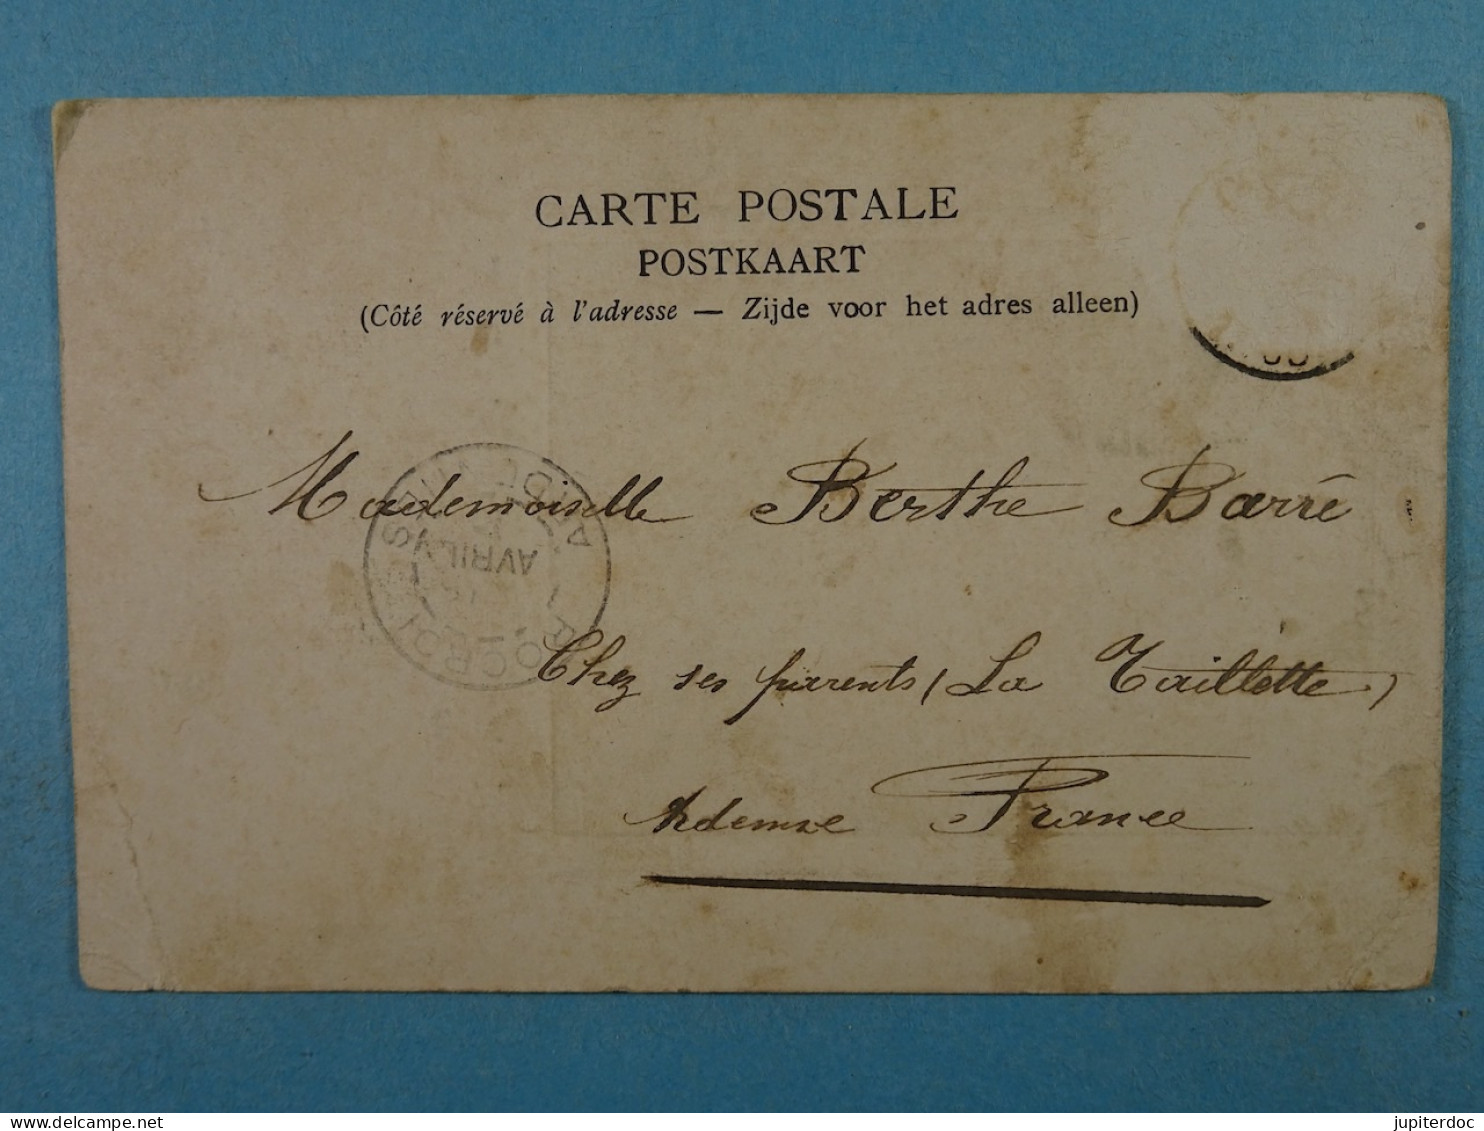 CARTE POSTALE
POSTKAART
(Côté réservé à l'adresse — Zijde voor het adres alleen)
Mademoiselle Berthe Barré
AVRIL
Chez ses parents (La Taillette)
France
delcampe.net
jupiterdoc